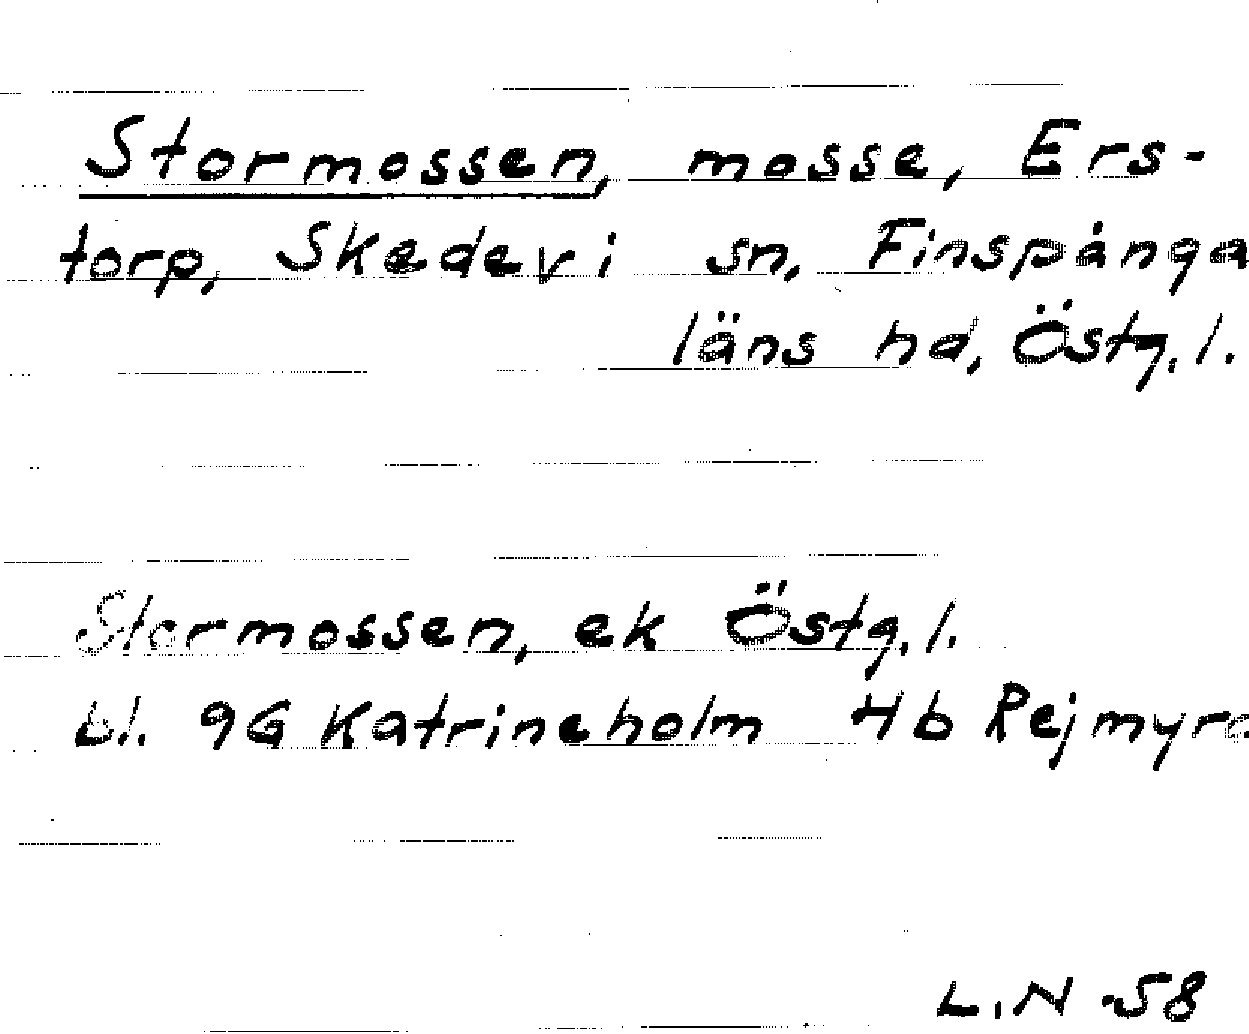 Stormossen, mosse, Ers-
torp, Skedevi sn, Finspånga
läns hd, Östg. l.
Stormossen, ek Östg. l.
bl. 9G Katrineholm 4b Rejmyre
L.N -58